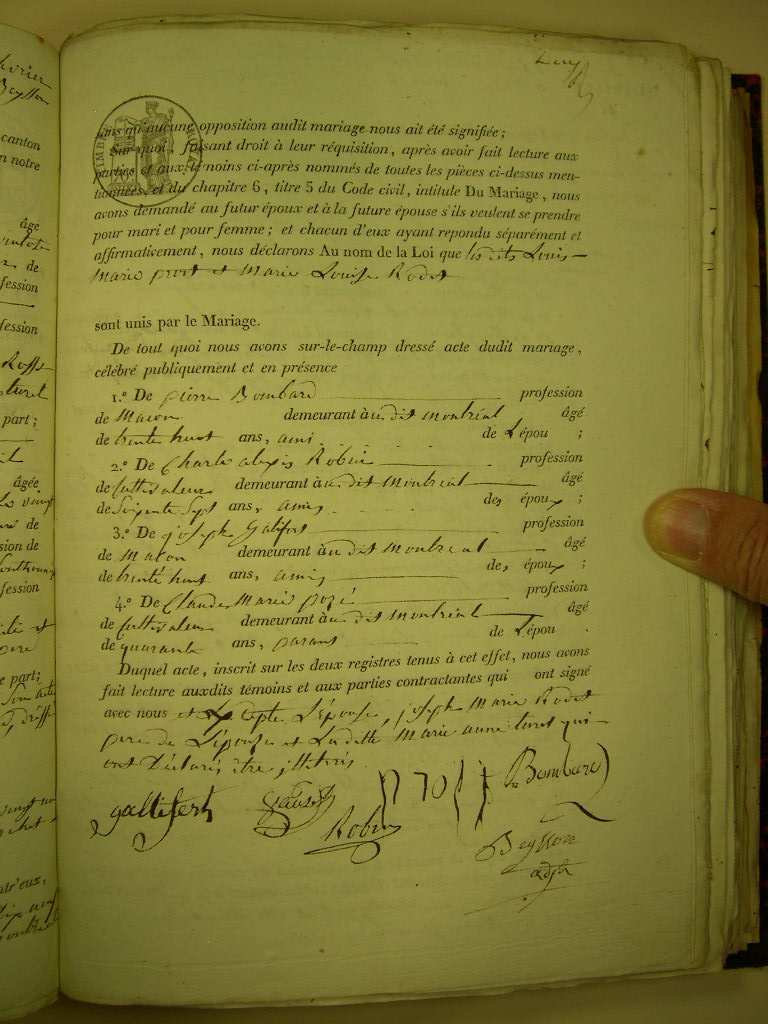 sans qu'aucune opposition audit mariage nous ait été signifiée ;
Sur quoi, faisant droit à leur réquisition, après avoir fait lecture aux
parties et aux témoins ci-après nommés de toutes les pièces ci-dessus men-
tionnées, et du chapitre 6, titre 5 du Code civil, intitule Du Mariage, nous
avons demandé au futur époux et à la future épouse s'ils veulent se prendre
pour mari et pour femme ; et chacun d'eux ayant repondu séparément et
affirmativement, nous déclarons Au nom de la Loi que lesdits Louis-
Marie prost et Marie Louise Rodet
sont unis par le Mariage.
De tout quoi nous avons sur-le-champ dressé acte dudit mariage,
célébré publiquement et en présence
1.° De pierre Bombard profession
de Macon demeurant àudit Montréal âgé
de trente huit ans, ami de Lépou ;
2.° De Charle alexis Robin profession
de Cultivateur demeurant àudit Montreal âgé
de Soixente Sept ans, amis des époux ;
3.° De joseph Galifert profession
de Macon demeurant àudit Montreal âgé
de trente huit ans, amis des époux ;
4.° De Claude Marie profession
de Cultivateur demeurant àudit Montréal âgé
de quarante ans, parant de Lépou .
Duquel acte, inscrit sur les deux registres tenus à cet effet, nous avons
fait lecture auxdits témoins et aux parties contractantes qui ont signé
avec nous et Excepte L'épouse, joseph Marie Rodet
pere de L'épouse et Laditte Marie anne turet qui
ont Déclarés être illiteris
gallifert Robin Bombard
Beyssore
adjt
canton
n notre
âgé
de
fession
fession
part ;
âgée
de
sion de
fession
e part ;